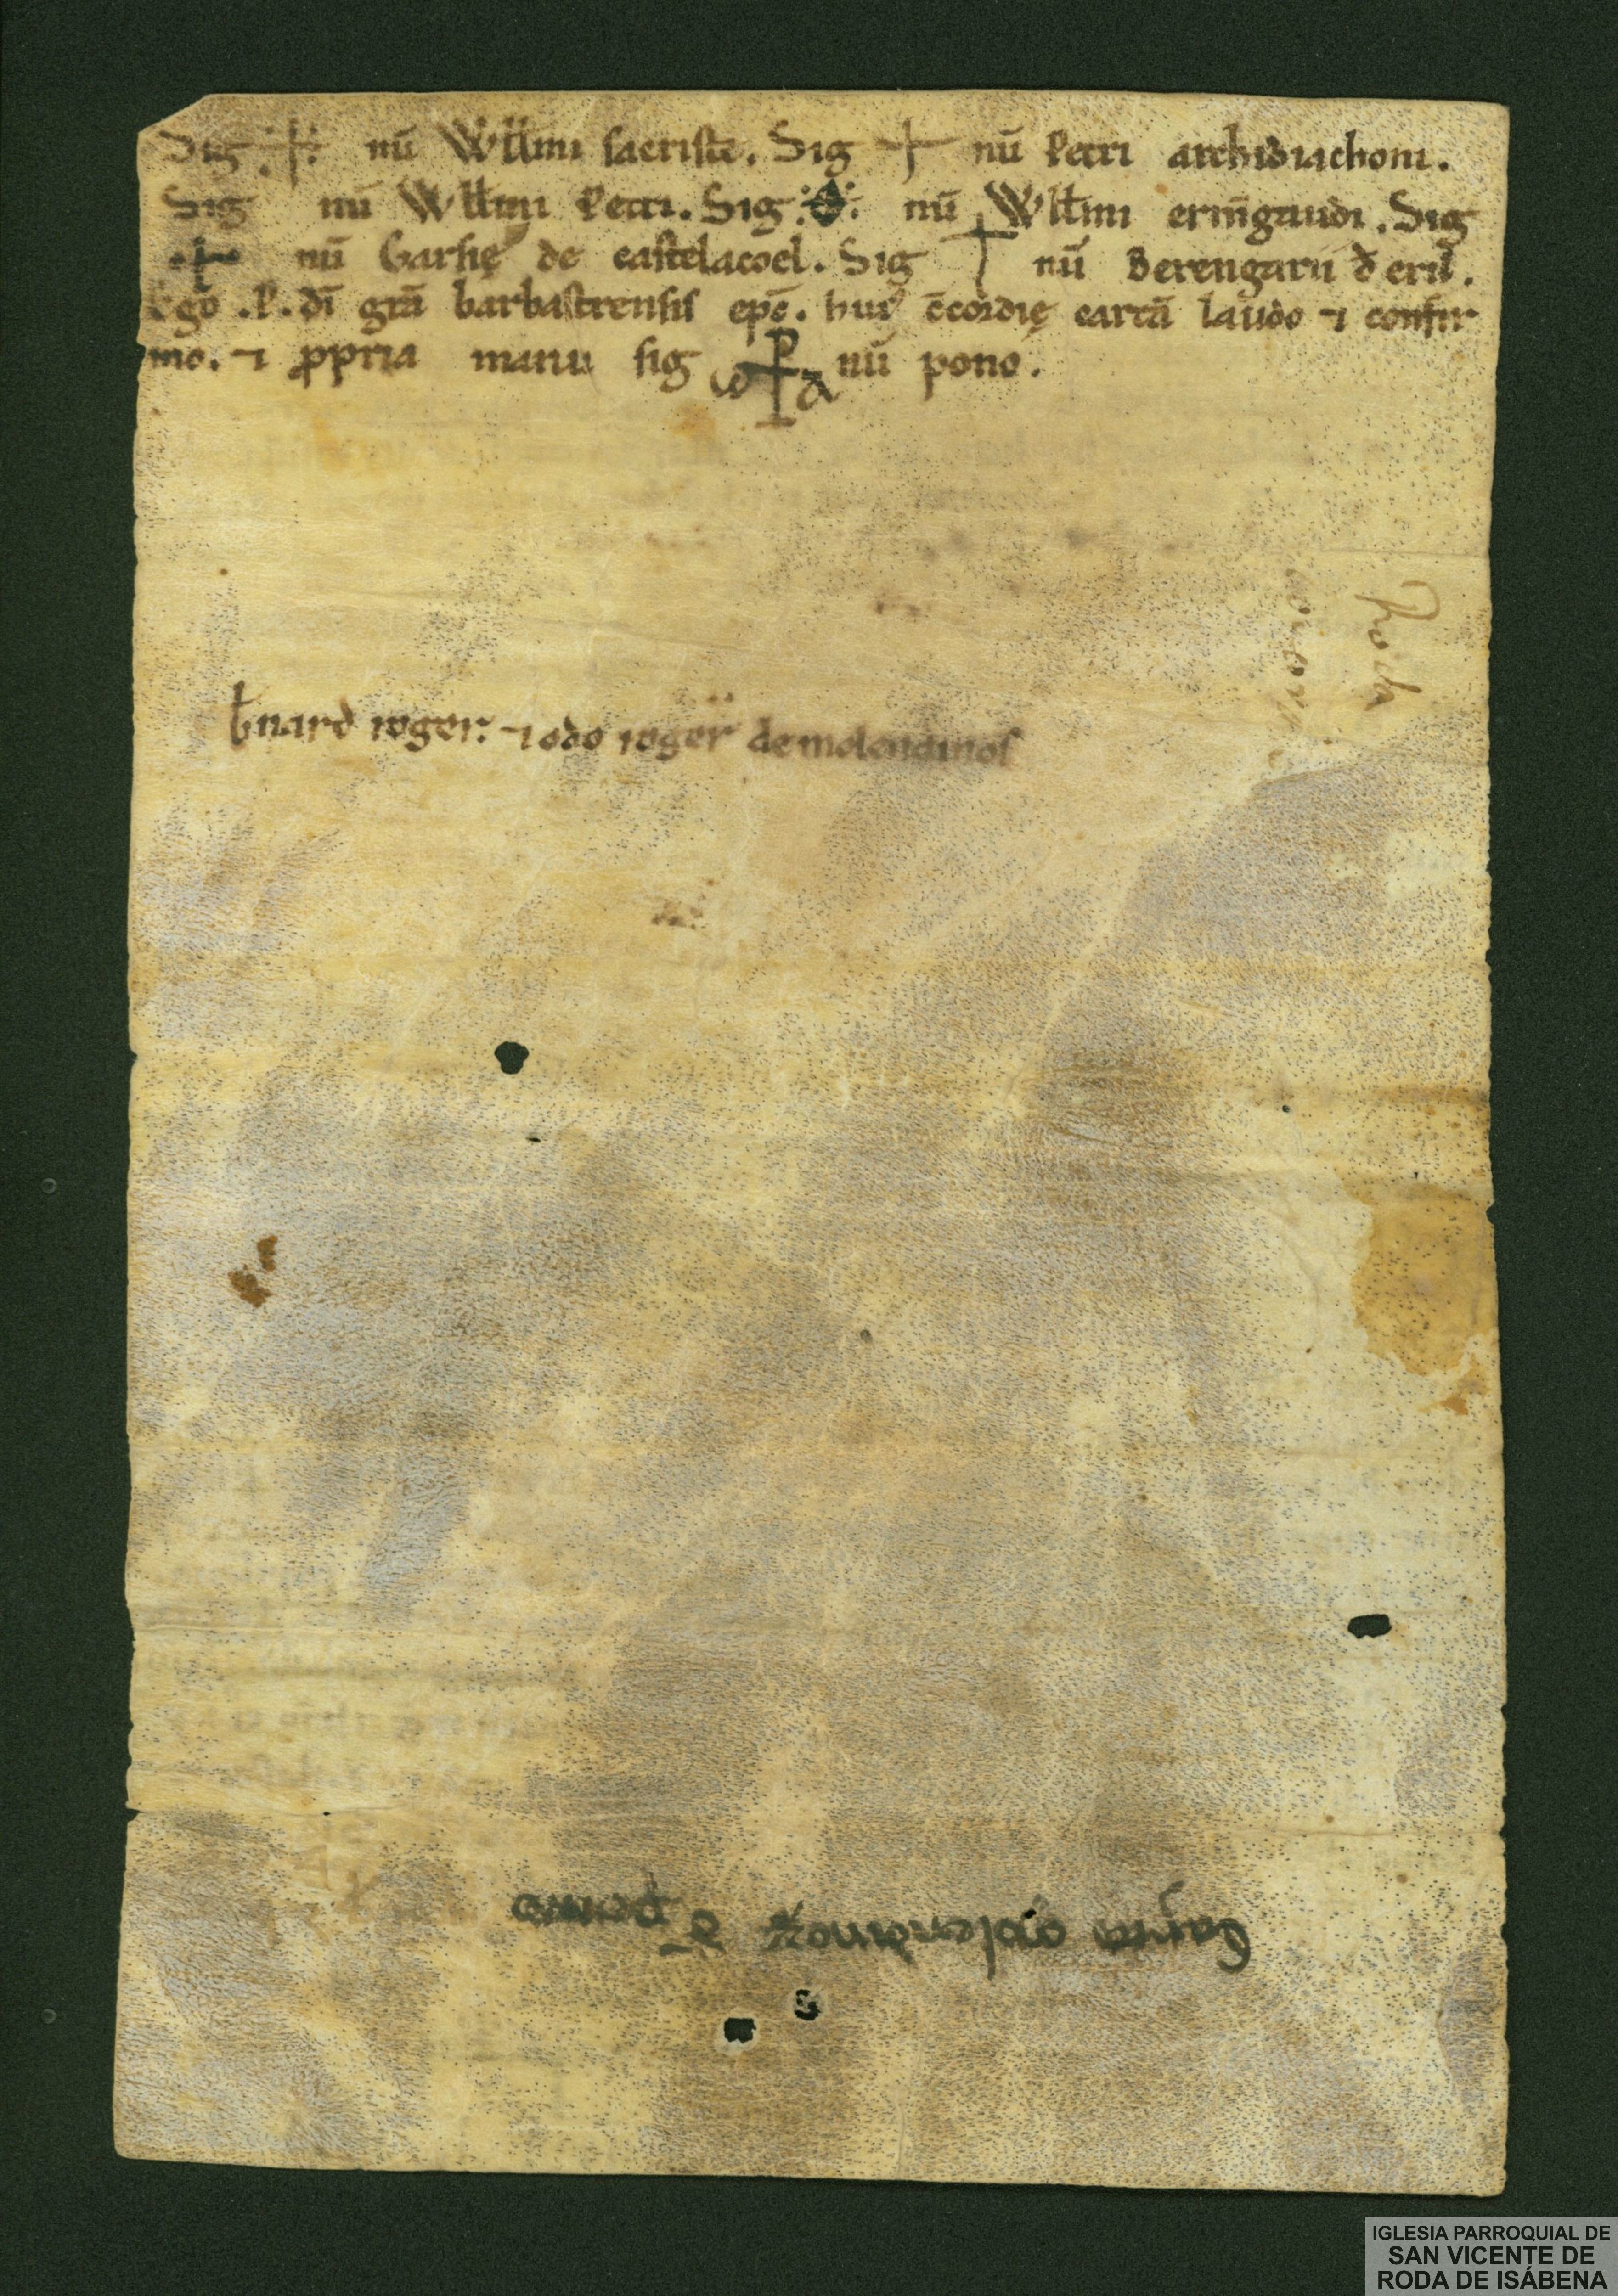 Sig + nū Wll̄mi sacriste. Sig + nū Petri archidiachoni.
Sig nū Wll̄mi Petri. Sig nū Wll̄mi erm̄gaudi. Sig
+ nū Garsię de castelacoel. Sig + nū Berengarii đ eril.
Ego .P. dī grā barbastrensis epc̄. huiꝰ c̄cordię cartā laudo ⁊ confir
mo. ⁊ ꝓpria manu sig ω P a nū pono.
Roda
b̄nard roger. ⁊ odo roger de molendinos
Carta
IGLESIA PARROQUIAL DE
SAN VICENTE DE
RODA DE ISÁBENA